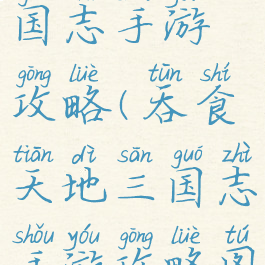 国志手游
gōng lüè tūn shí
攻略(吞食
tiān dì sān guó zhì
天地三国志
shǒu yóu gōng lüè tú
手游攻略图